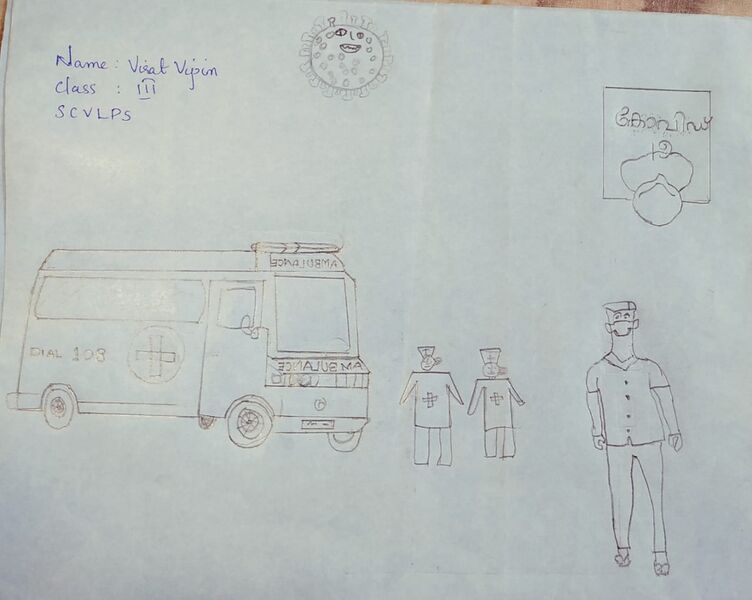 Name : Virat Vipin
Class : III
SCVLPS
കോവിഡ്
19
AMBULANCE
DIAL 108
AMBULANCE